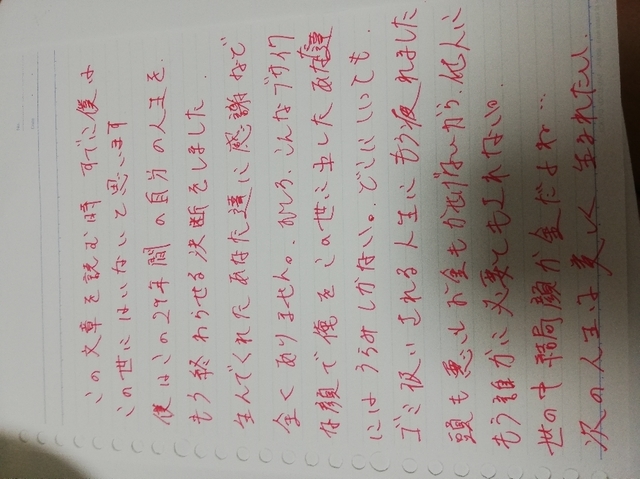 この文章を読む時 すでに僕は
この世にはいないと思います
僕はこの29年間の自分の人生を.
もう終わらせる決断をしました.
生んでくれたあなた達に感謝なで
全くありません。むしろ、こんなブサイク
な顔で俺をこの世に出したあなた達
にはうらみしかない。どこにいっても.
ゴミ扱いされる人生にもう疲れました
頭も悪いしお金もかせげないから、他人に
もう誰かに必要ともされない。
世の中結局顔か金だよね…
次の人生は美しく生まれたい.